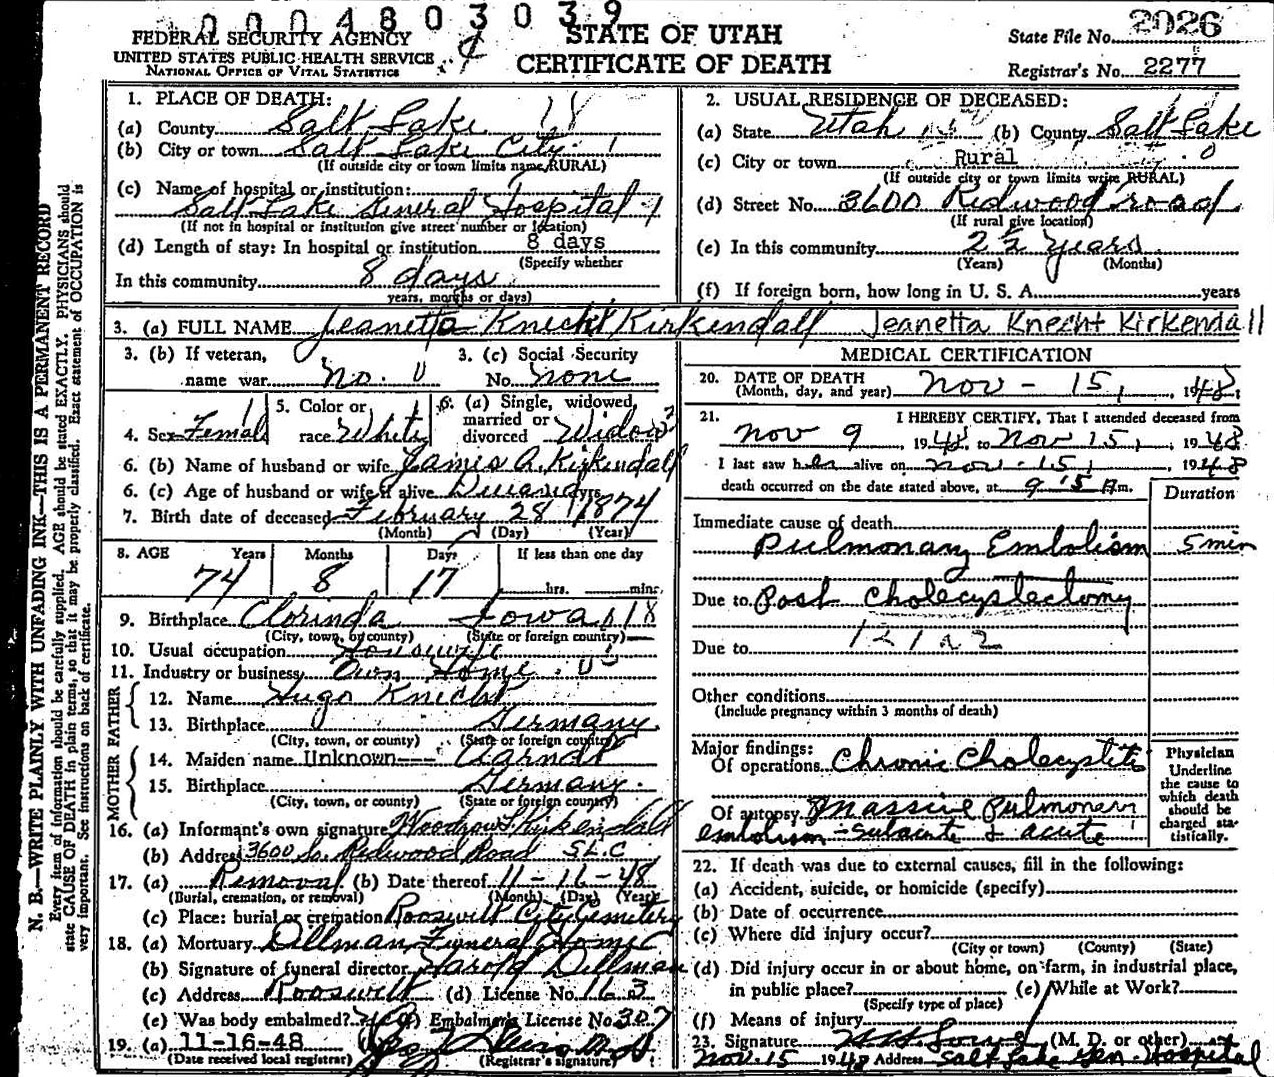 0004803039
FEDERAL SECURITY AGENCY
UNITED STATES PUBLIC HEALTH SERVICE
NATIONAL OFFICE OF VITAL STATISTICS
STATE OF UTAH
CERTIFICATE OF DEATH
State File No. 2026
Registrar's No. 2277
N. B.—WRITE PLAINLY WITH UNFADING INK—THIS IS A PERMANENT RECORD
Every item of information should be carefully supplied. AGE should be stated EXACTLY. PHYSICIANS should
state CAUSE OF DEATH in plain terms, so that it may be properly classified. Exact statement of OCCUPATION is
very important. See instructions on back of certificate.
1. PLACE OF DEATH:
(a) County Salt Lake
(b) City or town Salt Lake City
(If outside city or town limits name RURAL)
(c) Name of hospital or institution:
Salt Lake General Hospital
(If not in hospital or institution give street number or location)
(d) Length of stay: In hospital or institution 8 days
(Specify whether
In this community 8 days
years, months or days)
2. USUAL RESIDENCE OF DECEASED:
(a) State Utah (b) County Salt Lake
(c) City or town Rural
(If outside city or town limits write RURAL)
(d) Street No. 3600 Redwood road
(If rural give location)
(e) In this community 2½ years
(Years) (Months)
(f) If foreign born, how long in U. S. A. years
3. (a) FULL NAME Jeanetta Knecht Kirkendall Jeanetta Knecht Kirkendall
3. (b) If veteran,
name war no.
3. (c) Social Security
No. none
4. Sex Female
5. Color or
race White
6. (a) Single, widowed,
married or
divorced Widow
6. (b) Name of husband or wife James A. Kirkendall
6. (c) Age of husband or wife if alive yrs.
7. Birth date of deceased February 28 1874
(Month) (Day) (Year)
8. AGE Years Months Days If less than one day
74 8 17 hrs. min.
9. Birthplace Clorinda Iowa
(City, town, or county) (State or foreign country)
10. Usual occupation Housewife
11. Industry or business Own Home
FATHER
12. Name Hugo Knecht
13. Birthplace Germany
(City, town, or county) (State or foreign country)
MOTHER
14. Maiden name Unknown---
15. Birthplace Germany.
(City, town, or county) (State or foreign country)
16. (a) Informant's own signature Woodrow Kirkendall
(b) Address 3600 So. Redwood Road SLC
17. (a) Removal (b) Date thereof 11-16-48
(Burial, cremation, or removal) (Month) (Day) (Year)
(c) Place: burial or cremation Roosevelt City Cemetery
18. (a) Mortuary Dillman Funeral Home
(b) Signature of funeral director Harold Dillman
(c) Address Roosevelt (d) License No. 163
(e) Was body embalmed? Yes (f) Embalmer's License No. 307
19. (a) 11-16-48
(Date received local registrar) (Registrar's signature)
MEDICAL CERTIFICATION
20. DATE OF DEATH
(Month, day, and year) Nov - 15, 1948
21. I HEREBY CERTIFY, That I attended deceased from
Nov 9, 1948, to Nov 15, 1948
I last saw her alive on Nov. 15, 1948
death occurred on the date stated above, at 9:15 Am.
Duration
Immediate cause of death
Pulmonary Embolism 5 min
Due to Post Cholecystectomy
Due to
Other conditions
(Include pregnancy within 3 months of death)
Major findings:
Of operations Chronic Cholecystitis
Of autopsy Massive Pulmonary
embolism - subacute & acute
Physician
Underline
the cause to
which death
should be
charged sta-
tistically.
22. If death was due to external causes, fill in the following:
(a) Accident, suicide, or homicide (specify)
(b) Date of occurrence
(c) Where did injury occur?
(City or town) (County) (State)
(d) Did injury occur in or about home, on farm, in industrial place,
in public place? (e) While at Work?
(Specify type of place)
(f) Means of injury
23. Signature (M. D. or other)
Nov. 15 1948 Address Salt Lake Gen. Hospital